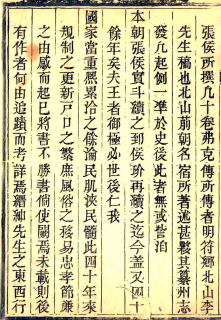 張侯所撰凡十卷弗克傳所傳者明符鄉北山李
先生稿也北山前朝名宿所著述甚夥其纂州志
發凡起例一準於史後此者無或訾洎
本朝張侯實斗續之到侯玠再續之迄今蓋又四十
餘年矣夫王者御極必世後仁我
國家當重熙累洽之餘淪民肌浹民髓此四十年來
規制之更新戶口之繁庶風俗之移易忠孝節廉
之由感而起已將書不勝書倘使闕焉未載則後
有作者何由追蹟而考詳焉縉紳先生之東西行